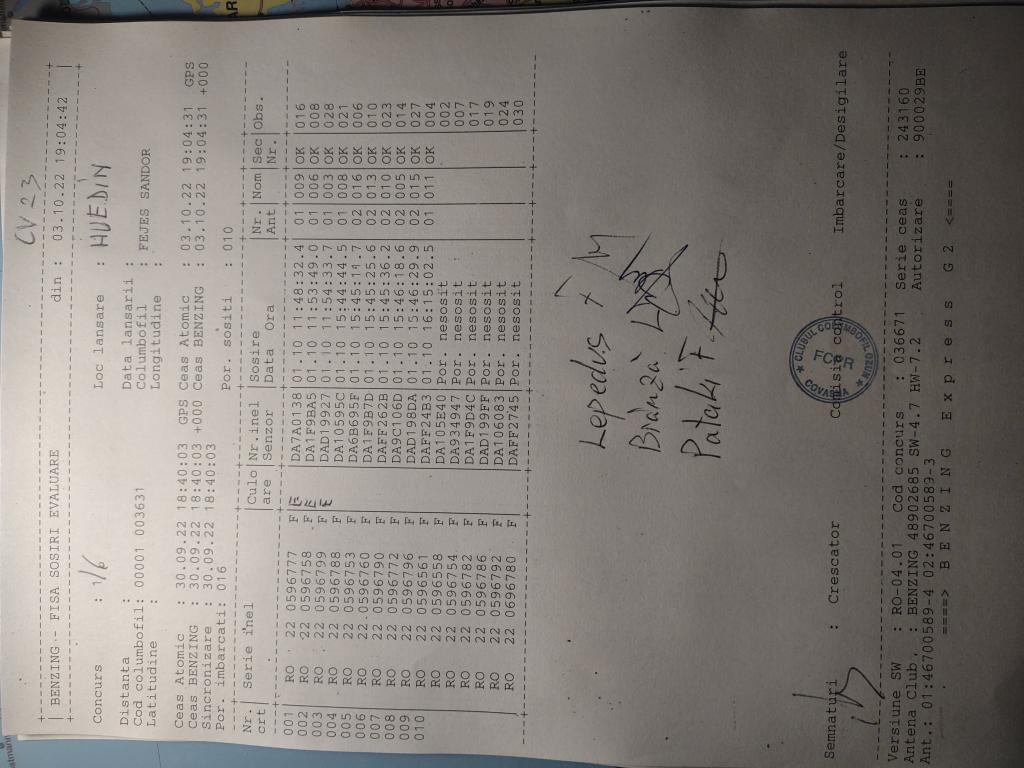 CV 23
| BENZING - FISA SOSIRI EVALUARE din : 03.10.22 19:04:42 |
Concurs : 1/6 Loc lansare : HUEDIN
Distanta : Data lansarii :
Cod columbofil: 00001 003631 Columbofil : FEJES SANDOR
Latitudine : Longitudine :
Ceas Atomic : 30.09.22 18:40:03 GPS Ceas Atomic : 03.10.22 19:04:31 GPS
Ceas BENZING : 30.09.22 18:40:03 +000 Ceas BENZING : 03.10.22 19:04:31 +000
Sincronizare : 30.09.22 18:40:03
Por. imbarcati: 016 Por. sositi : 010
Nr.| Serie inel |Culo|Nr.inel |Sosire |Nr. |Nom|Sec|Obs.
crt| |are |Senzor |Data Ora |Ant | |Nr.|
001 RO 22 0596777 F E DA7A0138 01.10 11:48:32.4 01 009 OK 016
002 RO 22 0596758 F E DA1F9BA5 01.10 11:53:49.0 01 006 OK 008
003 RO 22 0596799 F E DAD19927 01.10 11:54:33.7 01 003 OK 028
004 RO 22 0596788 F DA10595C 01.10 15:44:44.5 01 008 OK 021
005 RO 22 0596753 F DA6B695F 01.10 15:45:11.7 02 016 OK 006
006 RO 22 0596760 F DA1F9B7D 01.10 15:45:25.6 02 013 OK 010
007 RO 22 0596790 F DAFF262B 01.10 15:45:36.2 02 010 OK 023
008 RO 22 0596772 F DA9C106D 01.10 15:46:18.6 02 005 OK 014
009 RO 22 0596796 F DAD198DA 01.10 15:46:29.9 02 015 OK 027
010 RO 22 0596561 F DAFF24B3 01.10 16:15:02.5 01 011 OK 004
RO 22 0596558 F DA105E40 Por. nesosit 002
RO 22 0596754 F DA934947 Por. nesosit 007
RO 22 0596782 F DA1F9D4C Por. nesosit 017
RO 22 0596786 F DAD199FF Por. nesosit 019
RO 22 0596792 F DA106083 Por. nesosit 024
RO 22 0696780 F DAFF2745 Por. nesosit 030
Lepedus F
Brânză
Pataki F
Semnaturi : Crescator Comisie control Imbarcare/Desigilare
CLUBUL COLUMBOFIL OZUN
FCPR
COVASNA
Versiune SW : RO-04.01 Cod concurs : 036671 Serie ceas : 243160
Antena Club. : BENZING 48902685 SW-4.7 HW-7.2 Autorizare : 900029BE
Ant.: 01:46700589-4 02:46700589-3
====> B E N Z I N G E x p r e s s G 2 <====